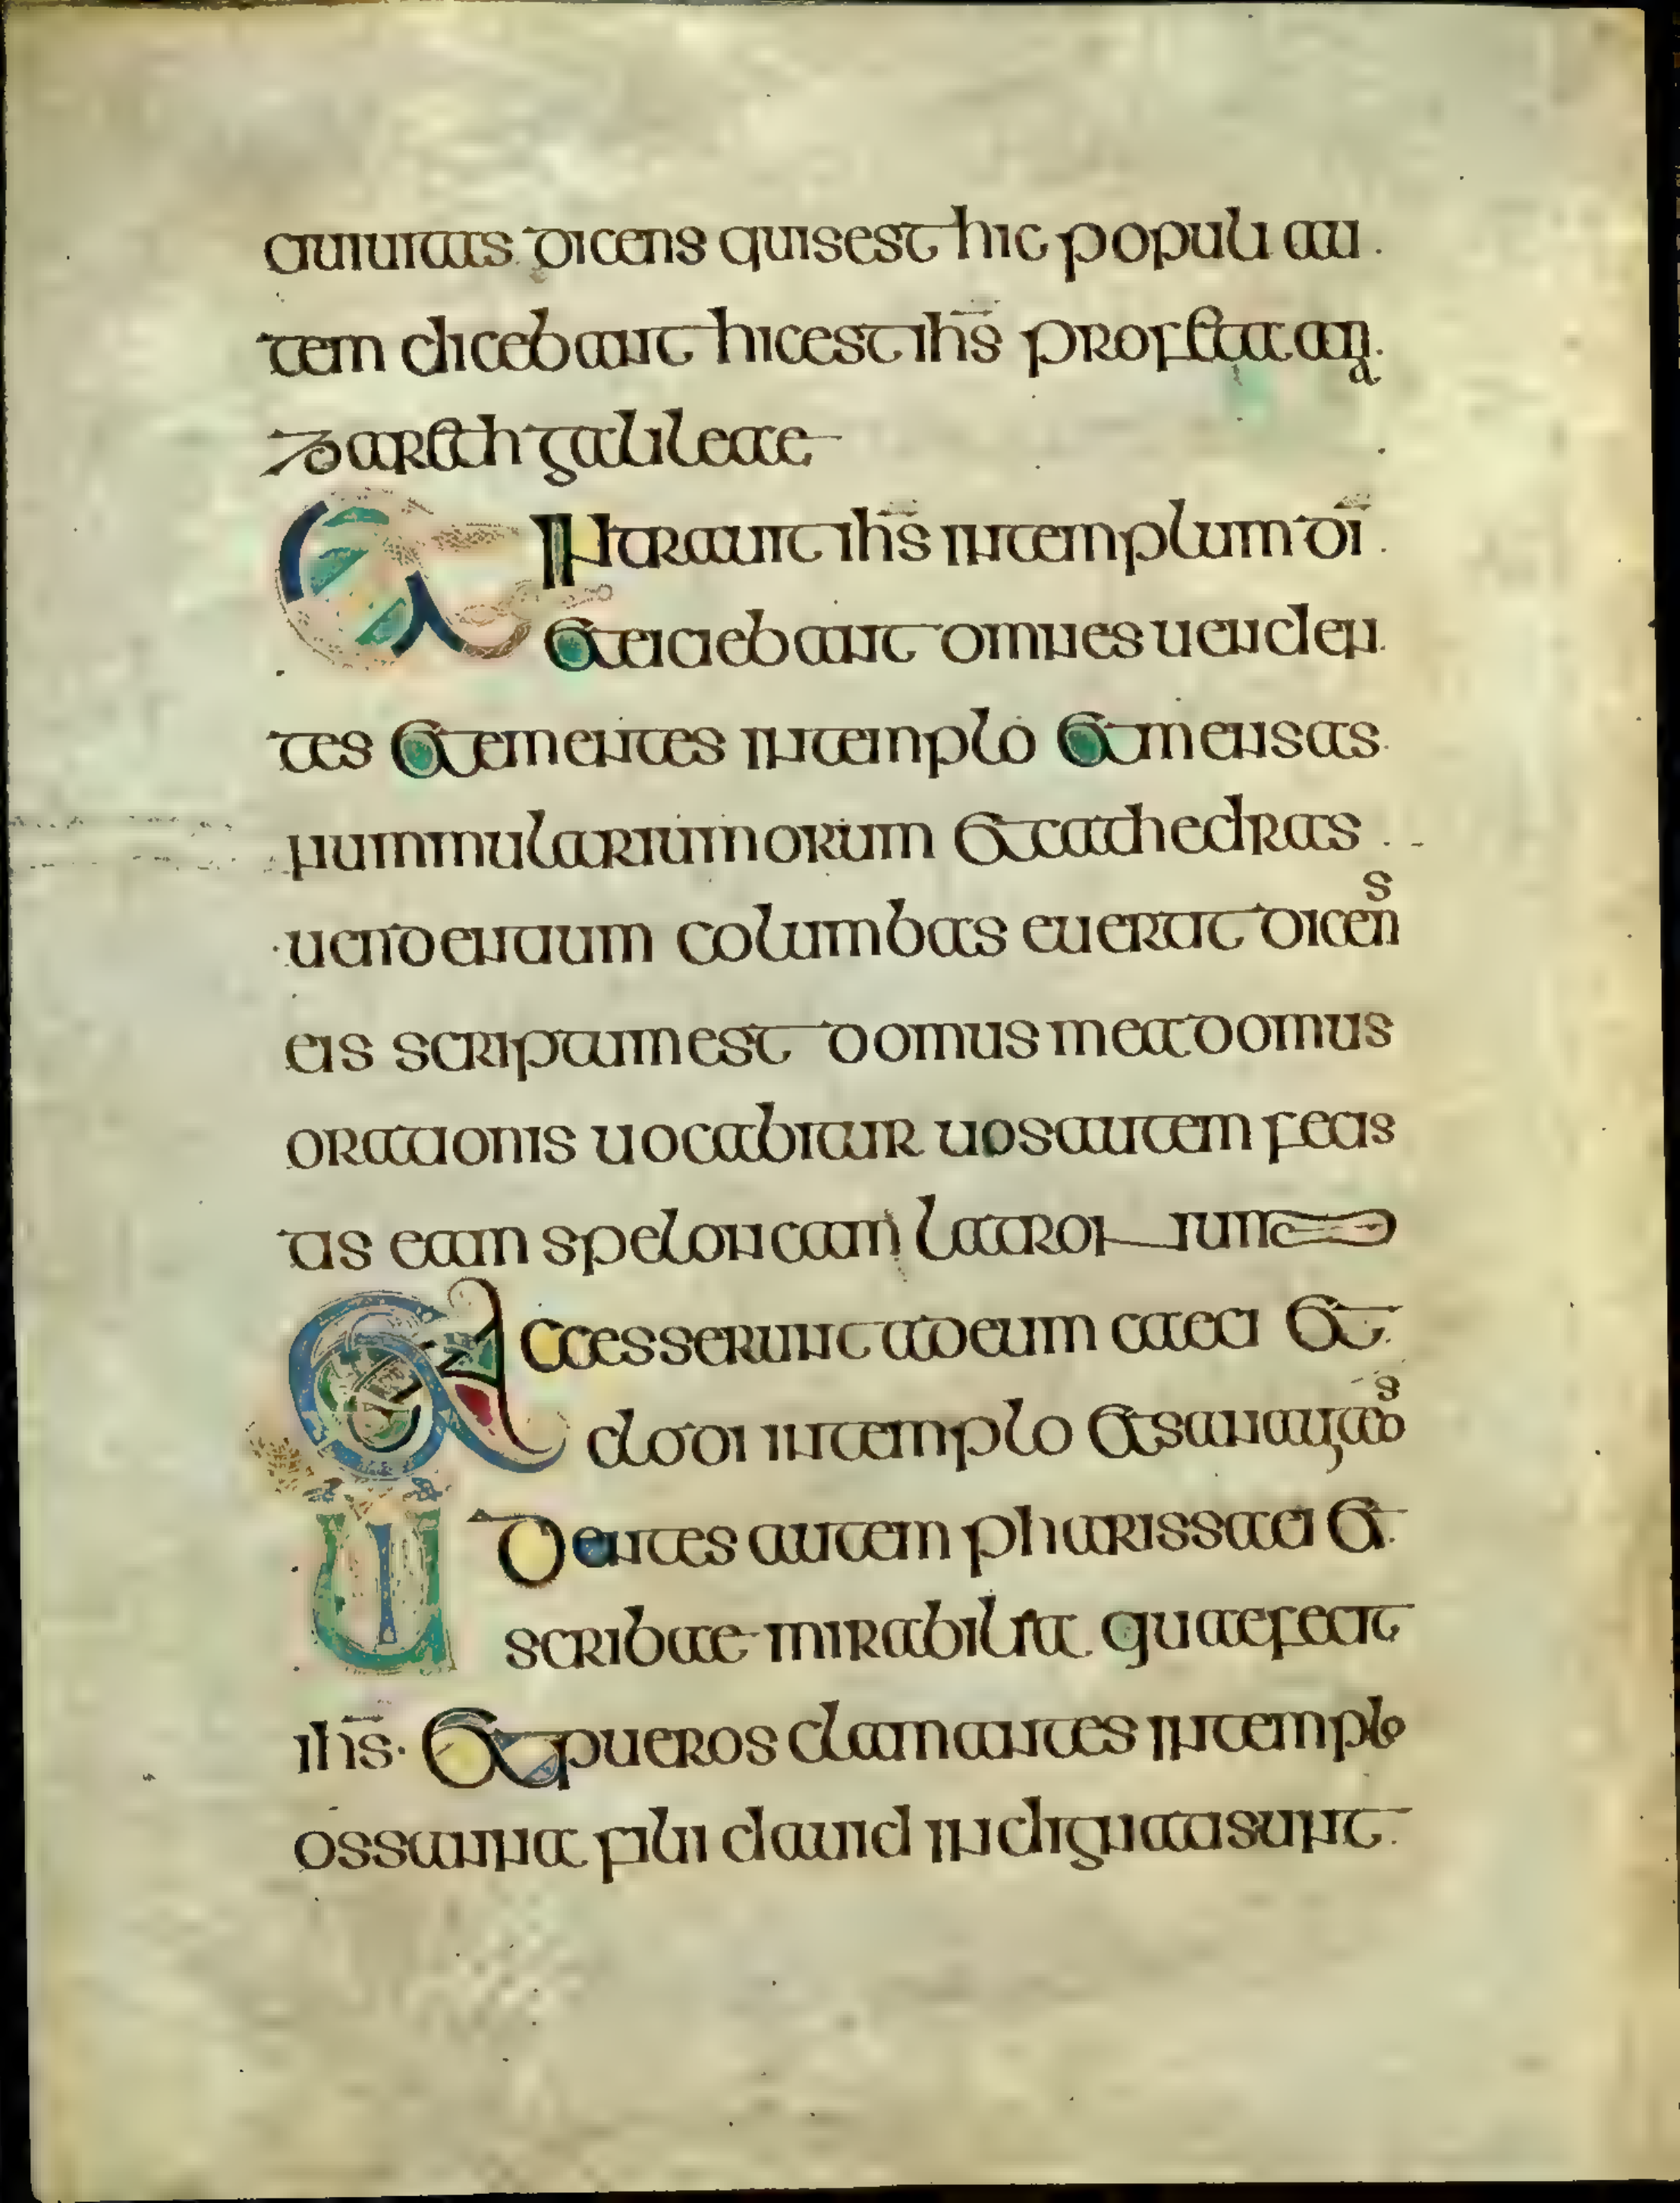 ciuitas dicens quis est hic populi au
tem dicebant hic est ihs profeta a na
zareth galileae
Et Intrauit ihs in templum di
et eiciebant omnes uenden
tes et ementes in templo et mensas
nummulariumorum et cathedras
uendentium columbas euertit dicens
eis scriptum est domus mea domus
orationis uocabitur uos autem fecis
tis eam speloncam latronum
Et Accesserunt ad eum caeci et
clodi in templo et sanauit eos
Uidentes autem pharissaei et
scribae mirabilia quae fecit
ihs et pueros clamantes in templo
ossanna filii dauid indignati sunt